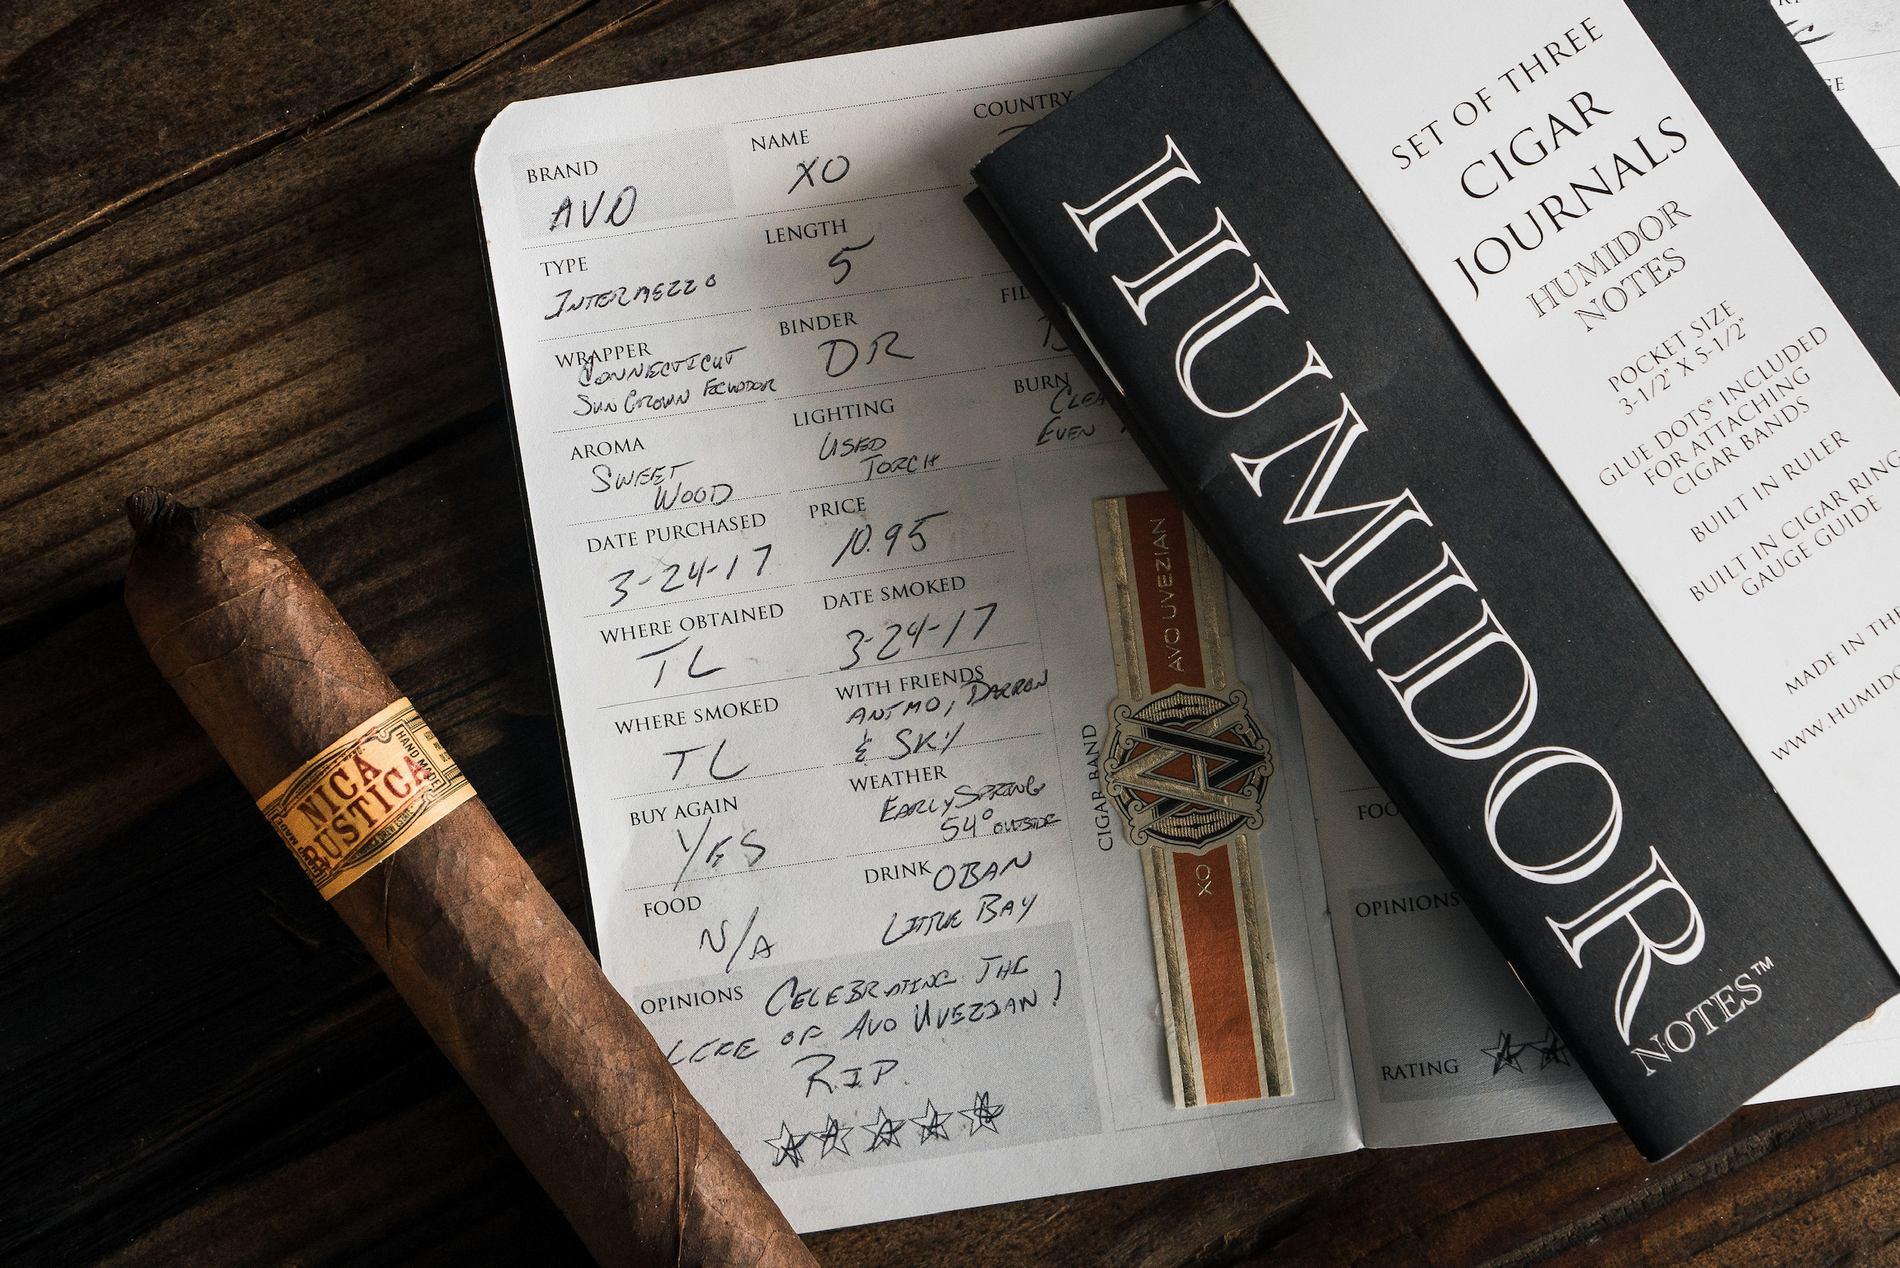 BRAND
AVO
NAME
XO
COUNTRY
TYPE
INTERMEZZO
LENGTH
5
WRAPPER
CONNECTICUT
SUN GROWN ECUADOR
BINDER
DR
FIL
AROMA
SWEET
WOOD
LIGHTING
USED
TORCH
BURN
CLEA
EVEN
DATE PURCHASED
3-24-17
PRICE
10.95
WHERE OBTAINED
TL
DATE SMOKED
3-24-17
WHERE SMOKED
TL
WITH FRIENDS
ANTMO, DARRON
& SKY
BUY AGAIN
YES
WEATHER
EARLY SPRING
54° OUTSIDE
FOOD
N/A
DRINK OBAN
LITTLE BAY
OPINIONS CELEBRATING THE
LIFE OF AVO UVEZIAN!
R.I.P.
CIGAR BAND
AVO UVEZIAN
XO
NICA
RUSTICA
HAND MADE
FOO
OPINIONS
RATING
HUMIDOR
NOTES™
SET OF THREE
CIGAR
JOURNALS
HUMIDOR
NOTES
POCKET SIZE
3-1/2" X 5-1/2"
GLUE DOTS® INCLUDED
FOR ATTACHING
CIGAR BANDS
BUILT IN RULER
BUILT IN CIGAR RING
GAUGE GUIDE
MADE IN THE
WWW.HUMIDO